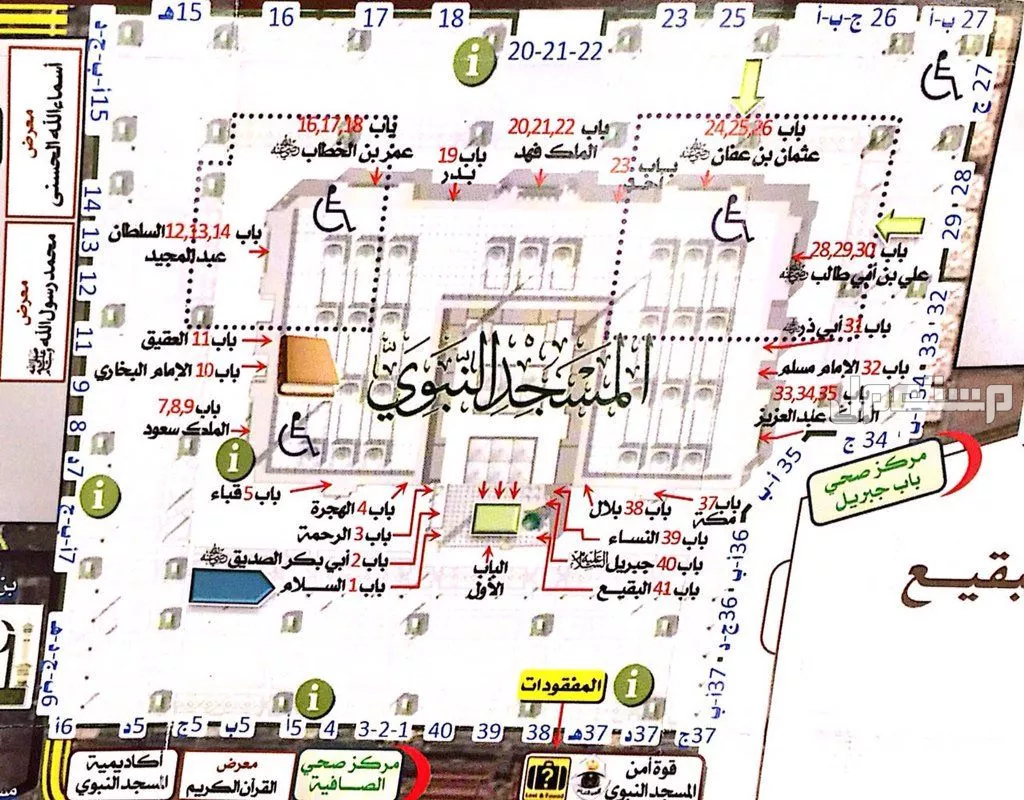 15هـ
16
17
18
20-21-22
23
25
26 ج-ب-أ
27 ب-أ
27 ج
28
29
32
33
34 ج
35 أ-ب
36أ-ب
36ج-د
37أ-ب
15أ-ب-ج-د
14
13
12
11
9
8
7د
7أ-ب-ج
6هـ-د-ج-ب
معرض
أسماء الله الحسنى
معرض
محمد رسول الله ﷺ
باب 16,17,18
عمر بن الخطاب رضي الله عنه
باب 19
بدر
باب 20,21,22
الملك فهد
باب 23
أحد
باب 24,25,26
عثمان بن عفان رضي الله عنه
باب 12,13,14 السلطان
عبدالمجيد
باب 28,29,30
علي بن أبي طالب رضي الله عنه
باب 11 العقيق
باب 10 الامام البخاري
باب 7,8,9
الملك سعود
باب 31 أبي ذر
باب 32 الامام مسلم
باب 33,34,35
الملك عبدالعزيز
المسجد النبوي
مستعمل
مركز صحي
باب جبريل
باب 5 قباء
باب 4 الهجرة
باب 3 الرحمة
باب 2 أبي بكر الصديق رضي الله عنه
باب 1 السلام
الباب
الأول
باب 37
مكة
باب 38 بلال
باب 39 النساء
باب 40 جبريل عليه السلام
باب 41 البقيع
بقيع
المفقودات
6أ
5د
5ج
5ب
5أ
4
3-2-1
40
39
38
37هـ
37د
37ج
أكاديمية
المسجد النبوي
معرض
القرآن الكريم
مركز صحي
الصافية
Lost & Found
قوة أمن
المسجد النبوي